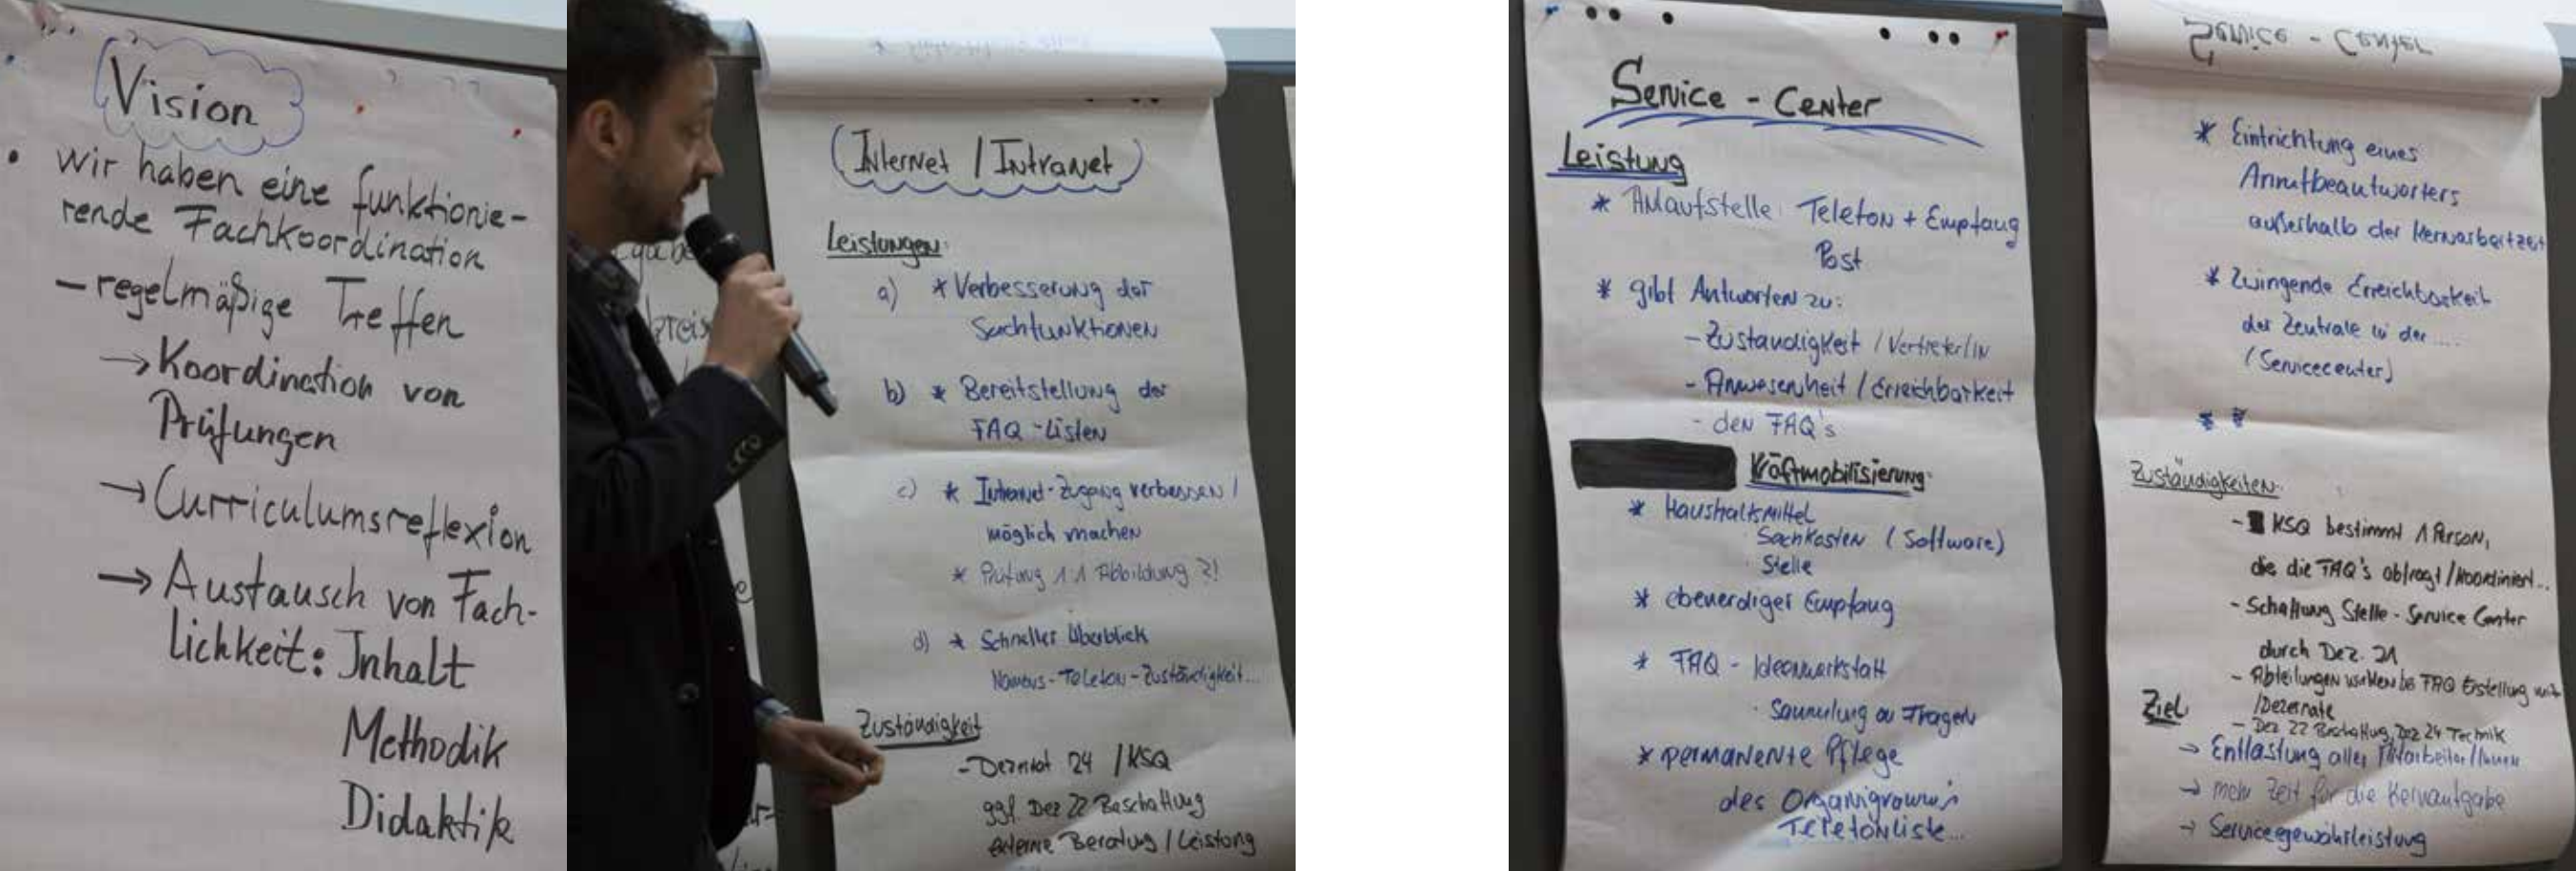 Vision
• wir haben eine funktionie-
rende Fachkoordination
- regelmäßige Treffen
→ Koordination von
Prüfungen
→ Curriculumsreflexion
→ Austausch von Fach-
lichkeit: Inhalt
Methodik
Didaktik
Internet / Intranet
Leistungen:
a) * Verbesserung der
Suchfunktionen
b) * Bereitstellung der
FAQ-Listen
c) * Intranet-Zugang verbessern /
möglich machen
* Prüfung 1:1 Abbildung ?!
d) * Schneller Überblick
Namens-Telefon-Zuständigkeit...
Zuständigkeit
- Dezernat 24 / KSQ
ggf Dez 22 Beschaffung
externe Beratung / Leistung
Service - Center
Leistung
* Anlaufstelle: Telefon + Empfang
Post
* gibt Antworten zu:
- Zuständigkeit / Vertreter/in
- Anwesenheit / Erreichbarkeit
- den FAQ's
Kräftmobilisierung:
* Haushaltsmittel
Sachkosten (Software)
Stelle
* ebenerdiger Empfang
* FAQ - Ideenwerkstatt
· Sammlung an Fragen
* permanente Pflege
des Organigramm's
Telefonliste...
Service - Center
* Eintrichtung eines
Anrufbeantworters
außerhalb der Kernarbeitzeit
* Zwingende Erreichbarkeit
der Zentrale in der ....
(Servicecenter)
* *
Zuständigkeiten:
- KSQ bestimmt 1 Person,
die die FAQ's abfragt / koordiniert...
- Schaffung Stelle - Service Center
durch Dez. 21
- Abteilungen wirken bei FAQ Erstellung mit
/Dezernate
- Dez 22 Beschaffung, Dez 24 Technik
Ziel
→ Entlastung aller Mitarbeiter/Innen
→ mehr Zeit für die Kernaufgabe
→ Servicegewährleistung